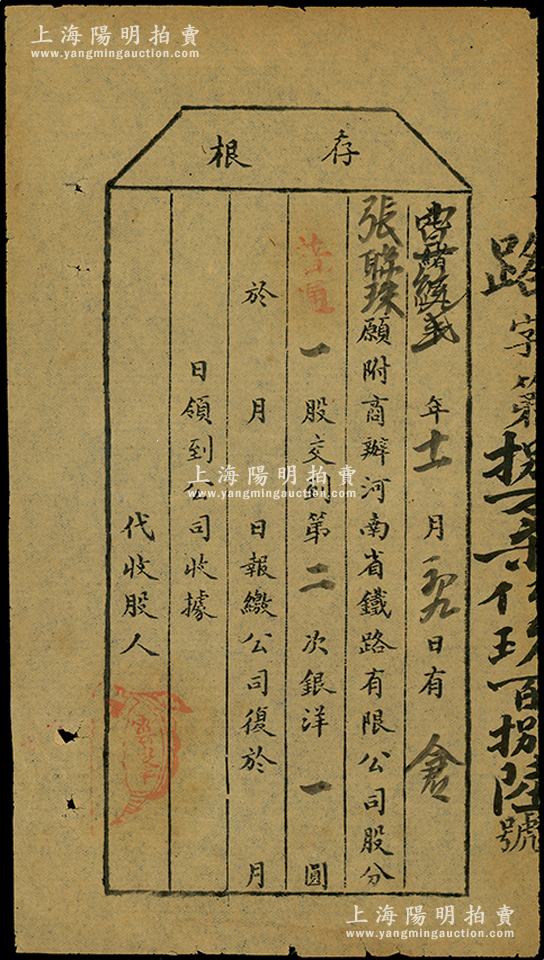 上海陽明拍賣
www.yangmingauction.com
存根
路字第捌萬柒仟玖百捌陸號
年十一月 日有
張聯珠願附商辦河南省鐵路有限公司股分
一股交到第二次銀洋一圓
於 月 日報繳公司復於 月
日領到公司收據
代收股人
上海陽明拍賣
www.yangmingauction.com
上海陽明拍賣
www.yangmingauction.com